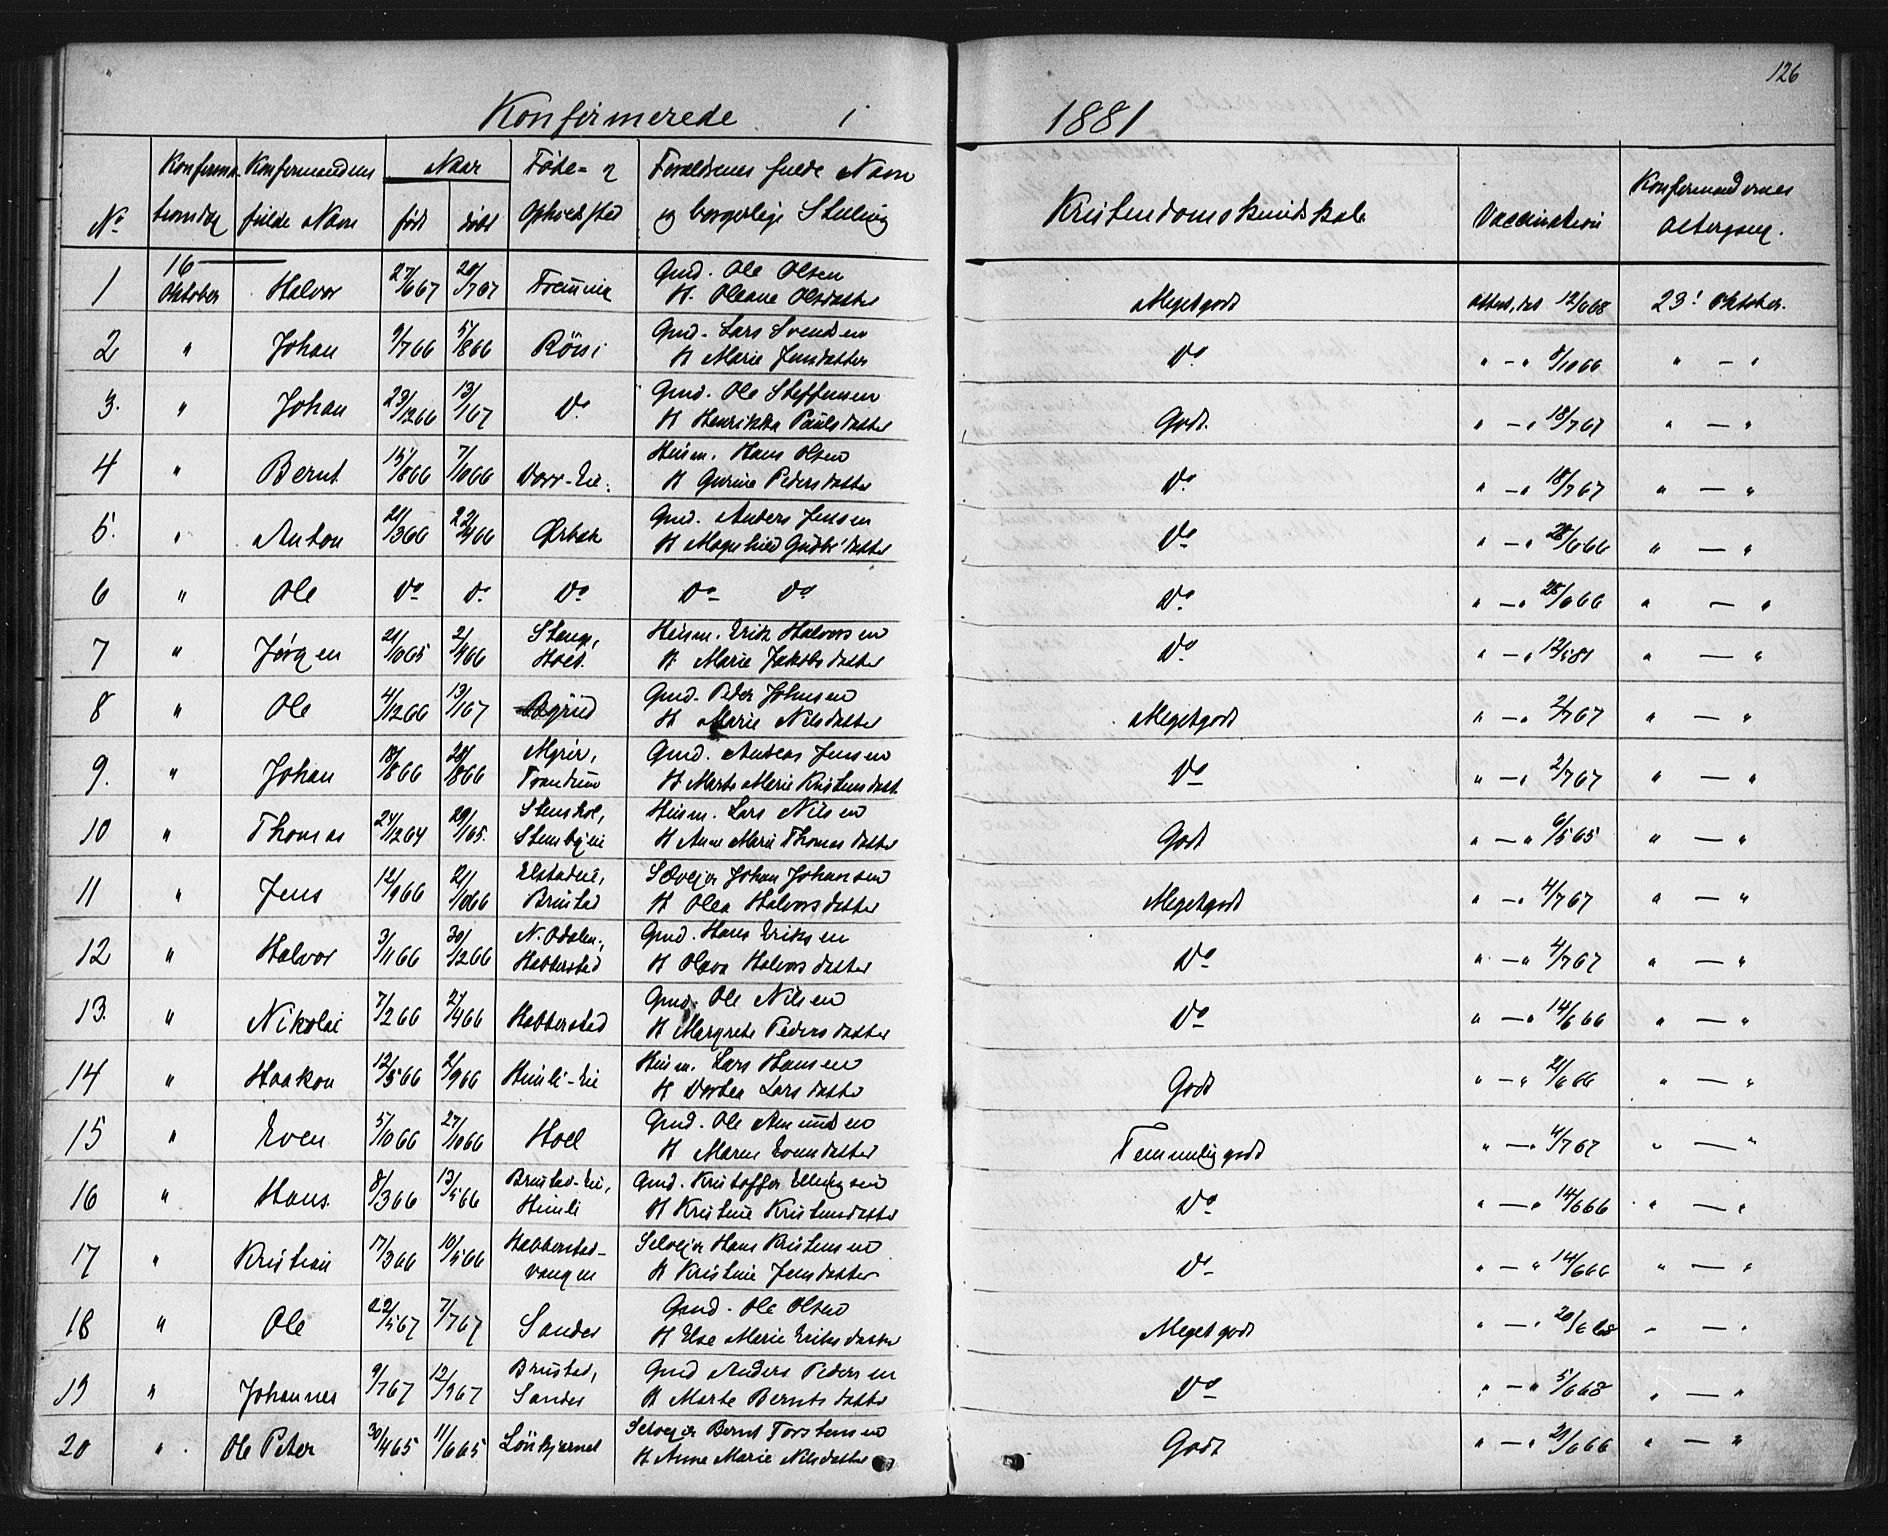 126
Konfirmerede i 1881
No
Konfirma-
tionsdag
Konfirmandens
fulde Navn
Naar
født
døbt
Føde- og
Opholdssted
Forældrenes fulde Navn
og borgerlige Stilling
Kristendomskundskab
Vaccination
Konfirmandernes
Altergang.
1 16 Oktober Halvor 27/6 67 20/7 67 Gmd. Ole Olsen
H. Oleane Olsdatter Megetgodt 12/6 68 23! Oktober.
2 " Johan 9/7 66 5/8 66 Røisi Gmd. Lars Svendsen
H Marie Jensdatter Do " — " 8/10 66 " — "
3. " Johan 23/12 66 13/1 67 Do Gmd. Ole Steffensen
H Henrikka Paulsdatter Godt. " — " 18/7 67 " — "
4 " Bernt 15/8 66 7/10 66 Dorr-Eie. Huism. Hans Olsen
H Gurine Pedersdatter Do " — " 18/7 67 " — "
5. " Anton 21/3 66 22/4 66 Ørbæk Gmd. Anders Jensen
H Magnhild Gudbr'datter Do " — " 28/6 66 " — "
6 " Ole Do Do Do Do Do Do " — " 28/6 66 " — "
7 " Jørgen 21/10 65 2/4 66 Stange,
Hoel. Huism. Erik Halvorsen
H. Marie Jakobsdatter Do " — " 12/5 81 " — "
8 " Ole 4/12 66 13/1 67 Gmd. Peder Johnsen
H Marie Nilsdatter Megetgodt " — " 2/7 67 " — "
9. " Johan 18/8 66 26/8 66 Myrer,
Trandum Gmd. Andreas Jensen
H. Marte Marie Kristensdatt Do " — " 2/7 67 " — "
10 " Thomas 24/12 64 29/1 65. Huism. Lars Nilsen
H Anne Marie Thomasdatter Godt " — " 6/5 65 " — "
11 " Jens 12/9 66 21/10 66 Elstadeie,
Brustad Selvejer Johan Johansen
H Olea Halvorsdatter Megetgodt " — " 4/7 67 " — "
12 " Halvor 3/11 66 30/12 66 N. Odalen,
Habberstad Gmd. Hans Eriksen
H Olava Halvorsdatter Do " — " 4/7 67 " — "
13. " Nikolai 7/2 66 2/4 66 Habberstad Gmd. Ole Nilsen
H Margrete Pedersdatter Do " — " 14/6 66 " — "
14 " Haakon 12/5 66 2/9 66 Himli-Eie Huism. Lars Hansen
H Dorthea Larsdatter Godt " — " 21/6 66 " — "
15 " Even 5/10 66 27/10 66 Hoel Gmd. Ole Amundsen
H Maren Evensdatter Temmeliggodt " — " 4/7 67 " — "
16 " Hans. 8/3 66 13/5 66 Brustad-Eie,
Himli Gmd. Kristoffer Ellingsen
H Kristine Kristensdatter Do " — " 14/6 66 " — "
17 " Kristian 17/3 66 10/5 66 Habberstad-
vangen Selvejer Hans Kristensen
H Kristine Jensdatter Do " — " 14/6 66 " — "
18 " Ole 22/5 67 7/7 67 Sander Gmd. Ole Olsen
H Else Marie Eriksdatter Megetgodt " — " 20/6 68 " — "
19 " Johannes 9/7 67 12/9 67 Brustad,
Sander Gmd Anders Pedersen
H Marte Berntsdatter Do " — " 5/6 68 " — "
20 " Ole Peter 30/4 65 11/6 65 Lönkjernet Selvejer Bernt Torstensen
H Anne Marie Nilsdatter Godt " — " 21/6 66 " — "